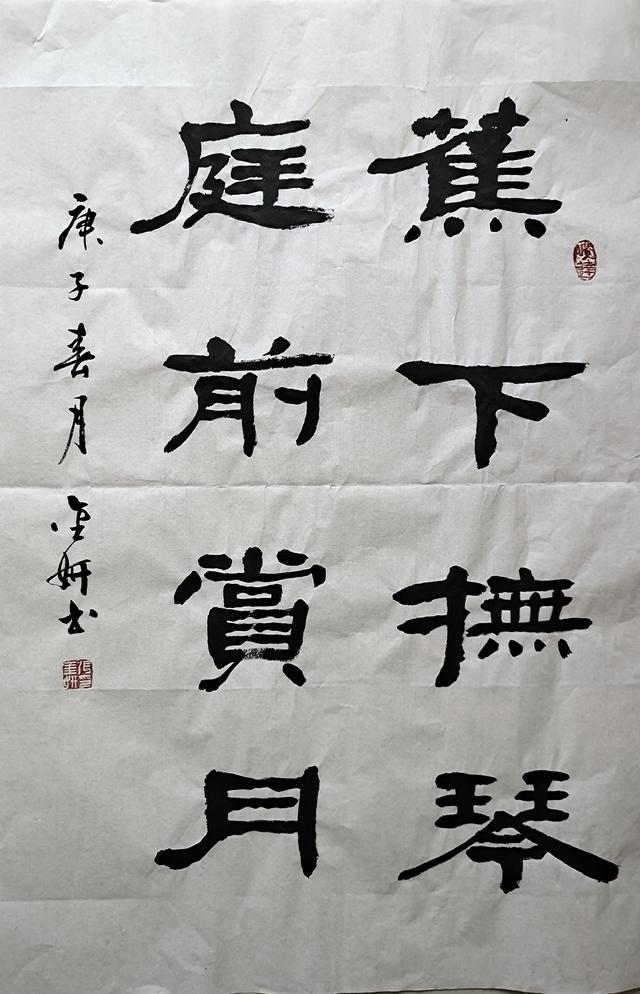 蕉下撫琴
庭前賞月
庚子春月 佳妍书